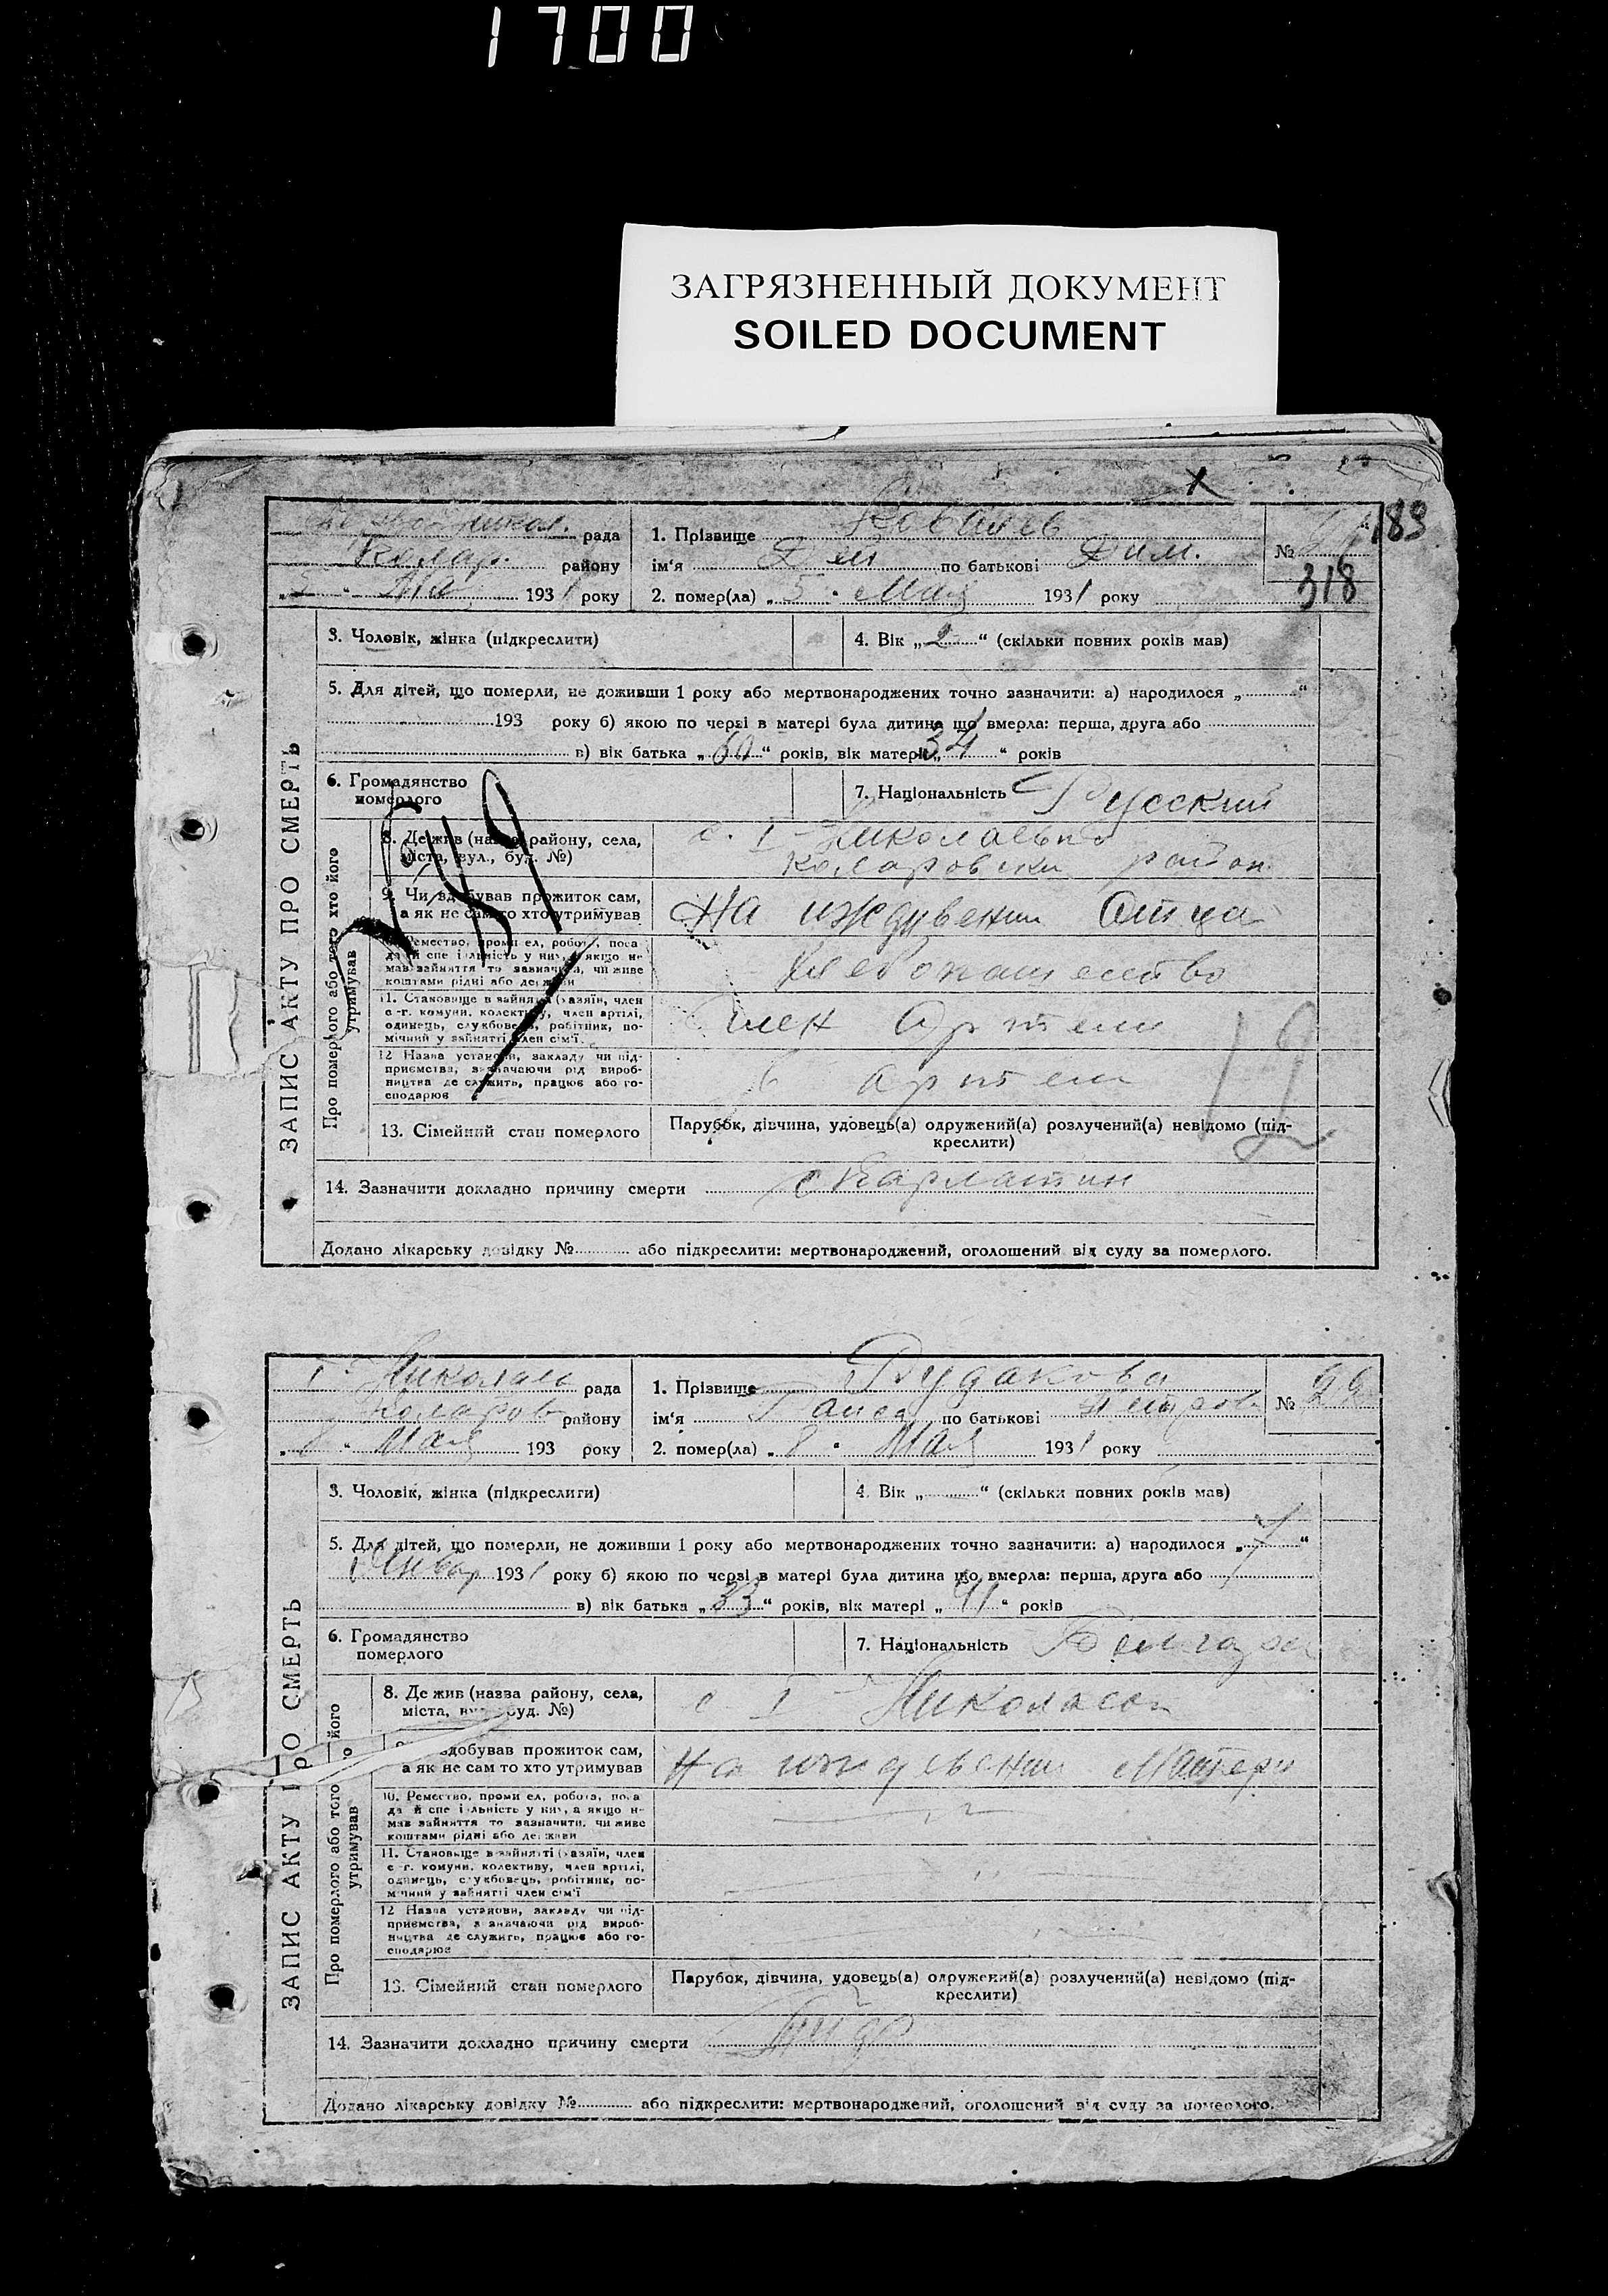 1700
ЗАГРЯЗНЕННЫЙ ДОКУМЕНТ
SOILED DOCUMENT
183
ЗАПИС АКТУ ПРО СМЕРТЬ
рада
Колар. району
193 1 року
1. Прізвище Ковалев
ім'я по батькові Дим.
2. помер(ла) „ 5 “ Мая 1931 року
№
318
3. Чоловік, жінка (підкреслити)
4. Вік „ 2 “ (скільки повних років мав)
5. Для дітей, що померли, не доживши 1 року або мертвонароджених точно зазначити: а) народилося „ “
193 року б) якою по черзі в матері була дитина що вмерла: перша, друга або
в) вік батька „ “ років, вік матері „ 34 “ років
6. Громадянство
померлого
7. Національність Русский
Про померлого або того хто його
утримував
8. Де жив (назва району, села,
міста, вул., буд. №)
с. I Николаевка
Коларовски район
9. Чи здобував прожиток сам,
а як не сам то хто утримував
На иждивении Отца
10. Ремество, промисел, робота, поса
да й спеціяльність у них, а якщо не
мав зайняття то зазначити, чи живе
коштами рідні або держави
Хлебопашество
11. Становище в зайнятті (хазяїн, член
с-г. комуни, колективу, член артілі,
одинець, службовець, робітник, по-
мічний у зайнятті член сім'ї
Член Артели
12 Назва установи, закладу чи під-
приємства, зазначаючи рід вироб-
ництва де служить, працює або го-
сподарює
в артели
13. Сімейний стан померлого
Парубок, дівчина, удовець(а) одружений(а) розлучений(а) невідомо (під-
креслити)
14. Зазначити докладно причину смерти Скарлатин
Додано лікарську довідку № або підкреслити: мертвонароджений, оголошений від суду за померлого.
ЗАПИС АКТУ ПРО СМЕРТЬ
I Николаев рада
Коларов району
„ 8 “ Мая 193 року
1. Прізвище Рудакова
ім'я Раиса по батькові Петров
2. помер(ла) „ 8 “ Мая 1931 року
№ 22
3. Чоловік, жінка (підкреслити)
4. Вік „ “ (скільки повних років мав)
5. Для дітей, що померли, не доживши 1 року або мертвонароджених точно зазначити: а) народилося „ 7 “
Январ 1931 року б) якою по черзі в матері була дитина що вмерла: перша, друга або
в) вік батька „ 33 “ років, вік матері „ 41 “ років
6. Громадянство
померлого
7. Національність
Про померлого або того його
утримував
8. Де жив (назва району, села,
міста, буд. №)
с I Николаев
здобував прожиток сам,
а як не сам то хто утримував
На иждивении Матери
10. Ремество, промисел, робота, поса
да й спеціяльність у них, а якщо не
мав зайняття то зазначити, чи живе
коштами рідні або держави
11. Становище в зайнятті (хазяїн, член
с-г. комуни, колективу, член артілі,
одинець, службовець, робітник, по-
мічний у зайнятті член сім'ї
12 Назва установи, закладу чи під-
приємства, зазначаючи рід вироб-
ництва де служить, працює або го-
сподарює
13. Сімейний стан померлого
Парубок, дівчина, удовець(а) одружений(а) розлучений(а) невідомо (під-
креслити)
14. Зазначити докладно причину смерти
Додано лікарську довідку № або підкреслити: мертвонароджений, оголошений від суду за померлого.